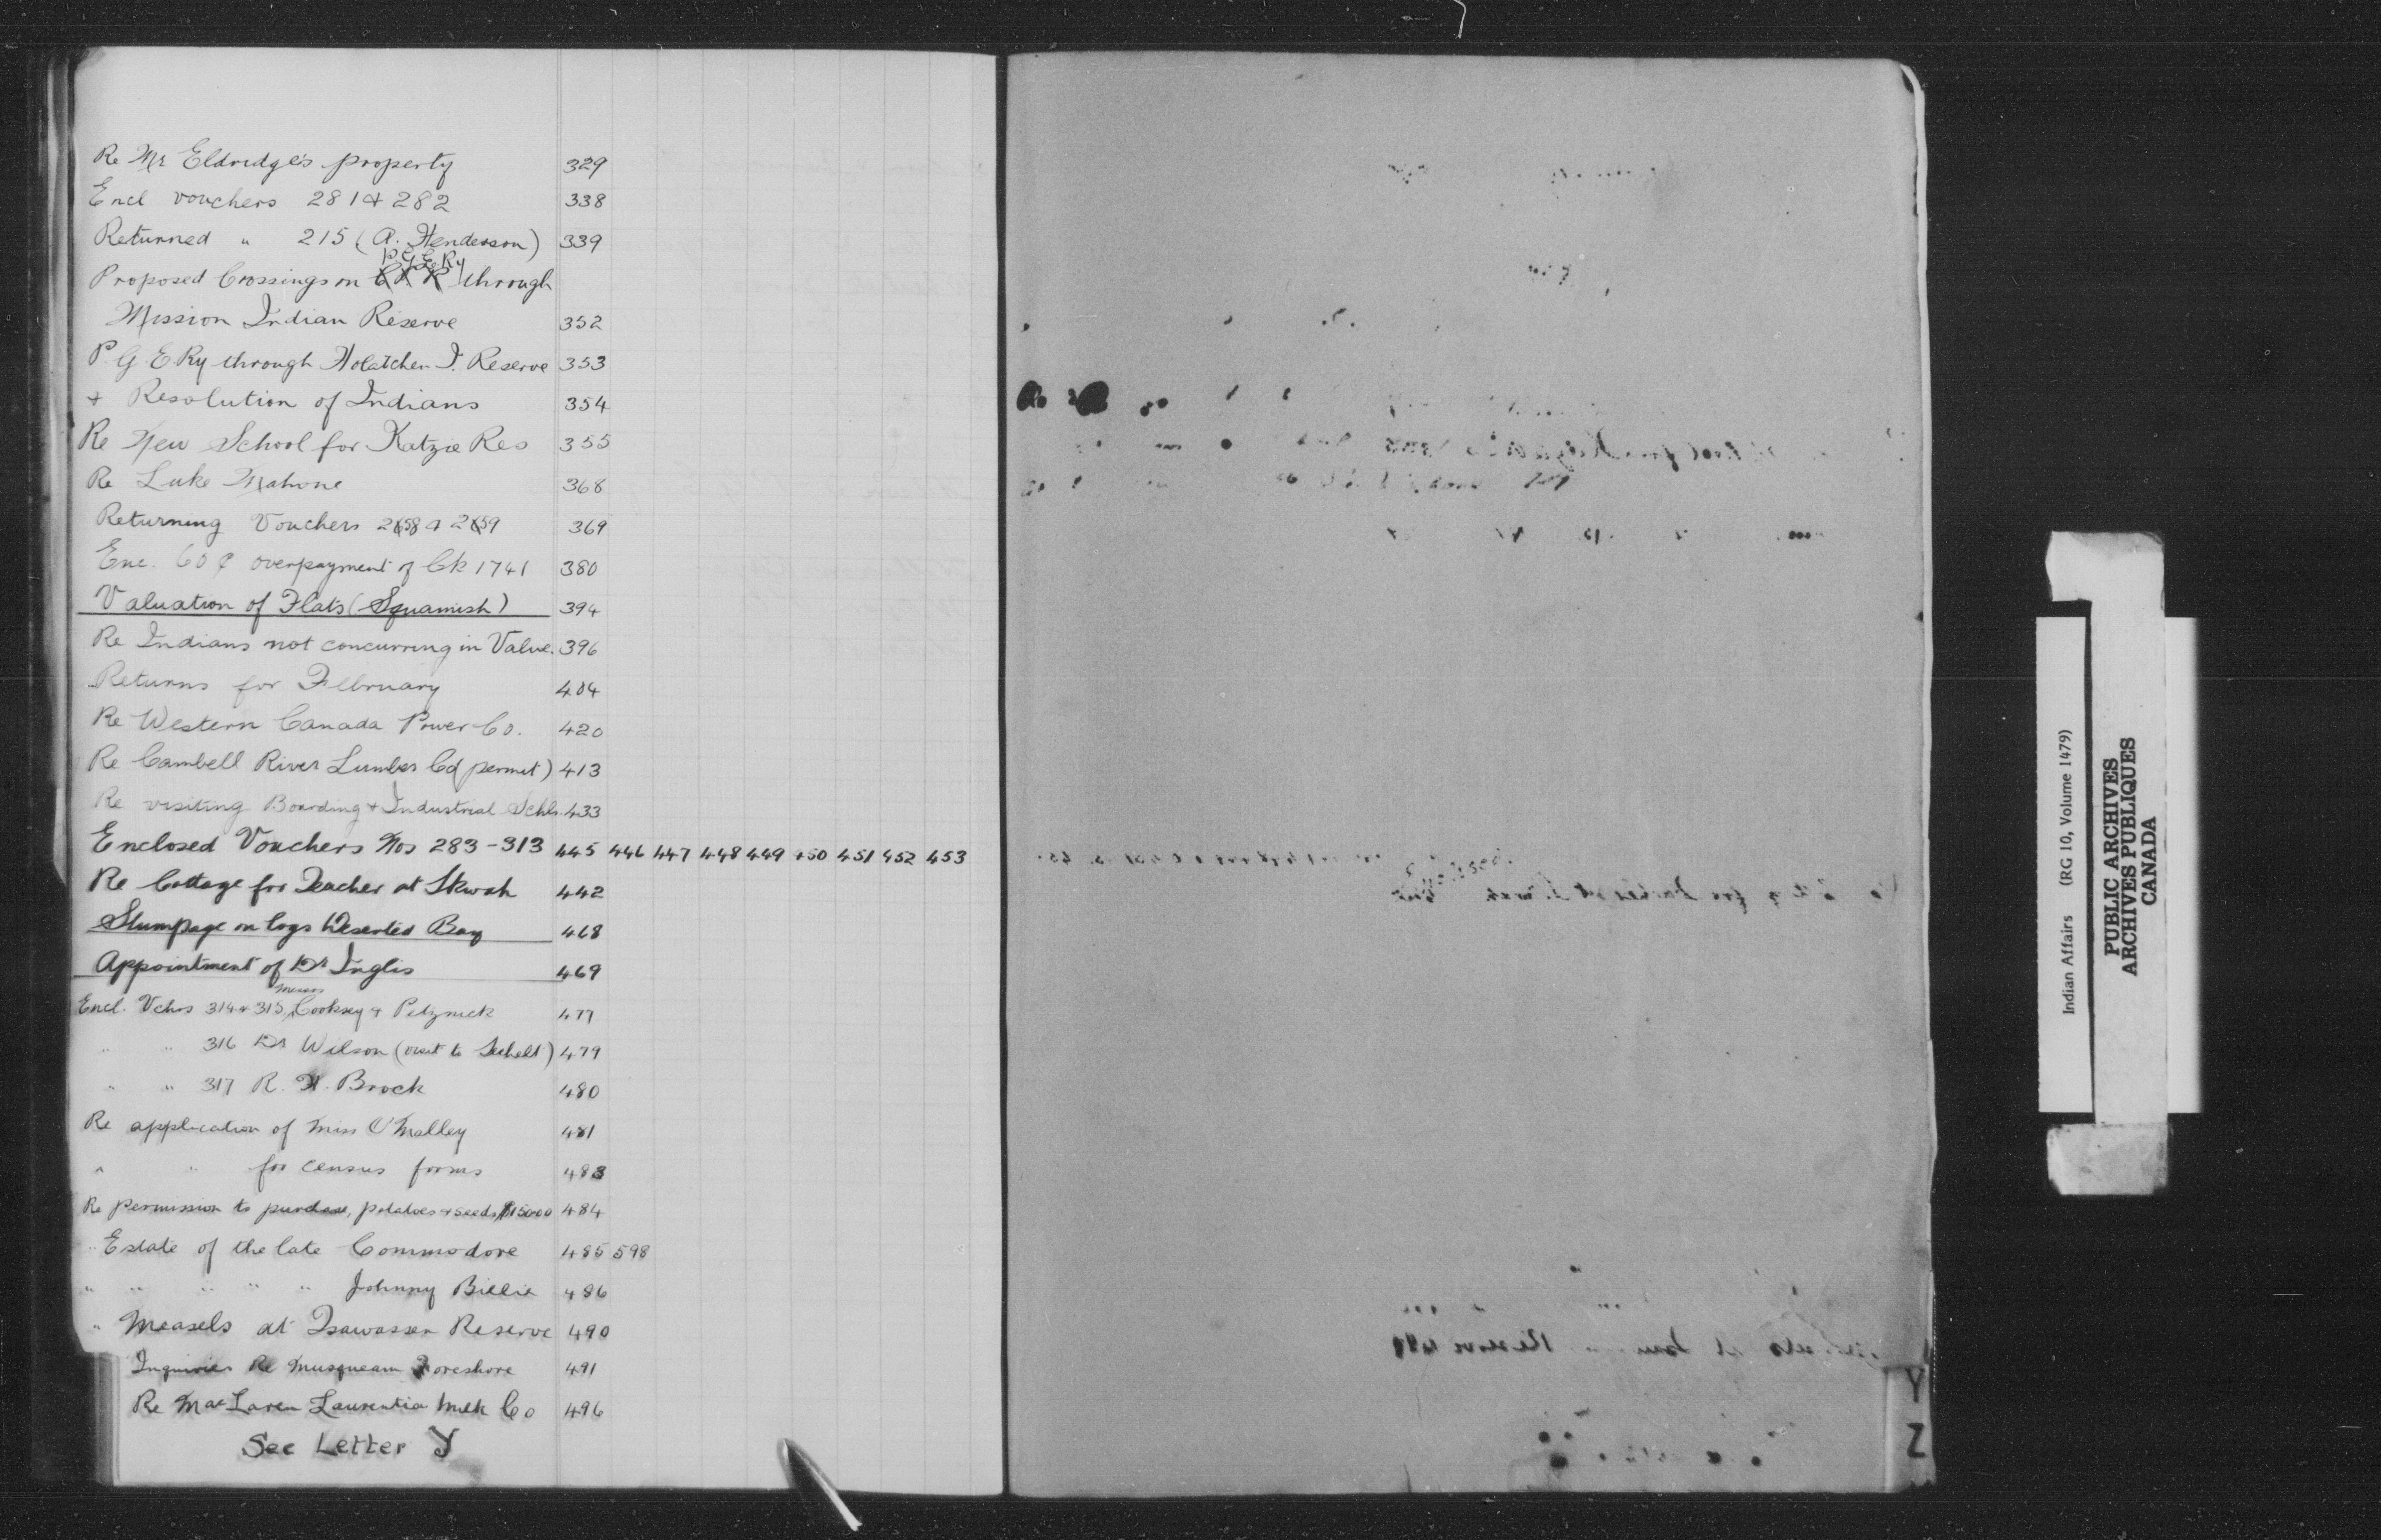 Re Mr Eldredge's property 329
Encl vouchers 281 & 282 338
Returned " 215 (A. Henderson) 339
P.G.E.Ry
Proposed Crossings on C P R through
Mission Indian Reserve 352
P. G. E Ry through Nolatchen I. Reserve 353
+ Resolution of Indians 354
Re New School for Katzie Res 355
Re Luke Mahone 368
Returning Vouchers 258 & 259 369
Enc. 60¢ overpayment of Ck 1741 380
Valuation of Flats (Squamish) 394
Re Indians not concurring in Value. 396
Returns for February 404
Re Western Canada Power Co. 420
Re Cambell River Lumber Co (permit) 413
Re visiting Boarding + Industrial Schls. 433
Enclosed Vouchers Nos 283-313 445 446 447 448 449 450 451 452 453
Re Cottage for Teacher at Skwah 442
Stumpage on logs Deserted Bay 468
Appointment of Dr Inglis 469
Messrs
Encl. Vchrs 314 & 315, Cooksey & Petznick 477
" " 316 Dr Wilson (visit to Sechelt) 479
" " 317 R. H. Brock 480
Re application of Miss O'Malley 481
" " for census forms 483
Re permission to purchase, potatoes & seeds, $150.00 484
" Estate of the late Commodore 485 598
" " " " " Johnny Billie 486
" Measels at Tsawassen Reserve 490
Inquiries Re Musqueam Foreshore 491
Re MacLaren Laurentia Milk Co 496
See Letter Y
Y
Z
Indian Affairs (RG 10, Volume 1479)
PUBLIC ARCHIVES
ARCHIVES PUBLIQUES
CANADA